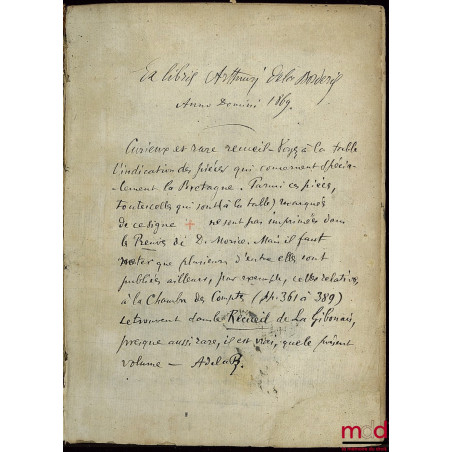 Ex libris Arthuri de la Borderie
Anno Domini 1869.
Curieux et rare recueil - Voyez à la table
l'indication des pièces qui concernent spécia-
lement la Bretagne. Parmi ces pièces,
toutes celles qui sont (à la table) marquées
de ce signe + ne sont pas imprimées dans
les Preuves de D. Morice. Mais il faut
noter que plusieurs d'entre elles sont
publiées ailleurs, par exemple, celles relatives
à la Chambre des Comptes (pp. 361 à 389)
se trouvent dans le Recueil de La Gibonais,
presque aussi rare, il est vrai, que le présent
volume — A de la B.
mdd